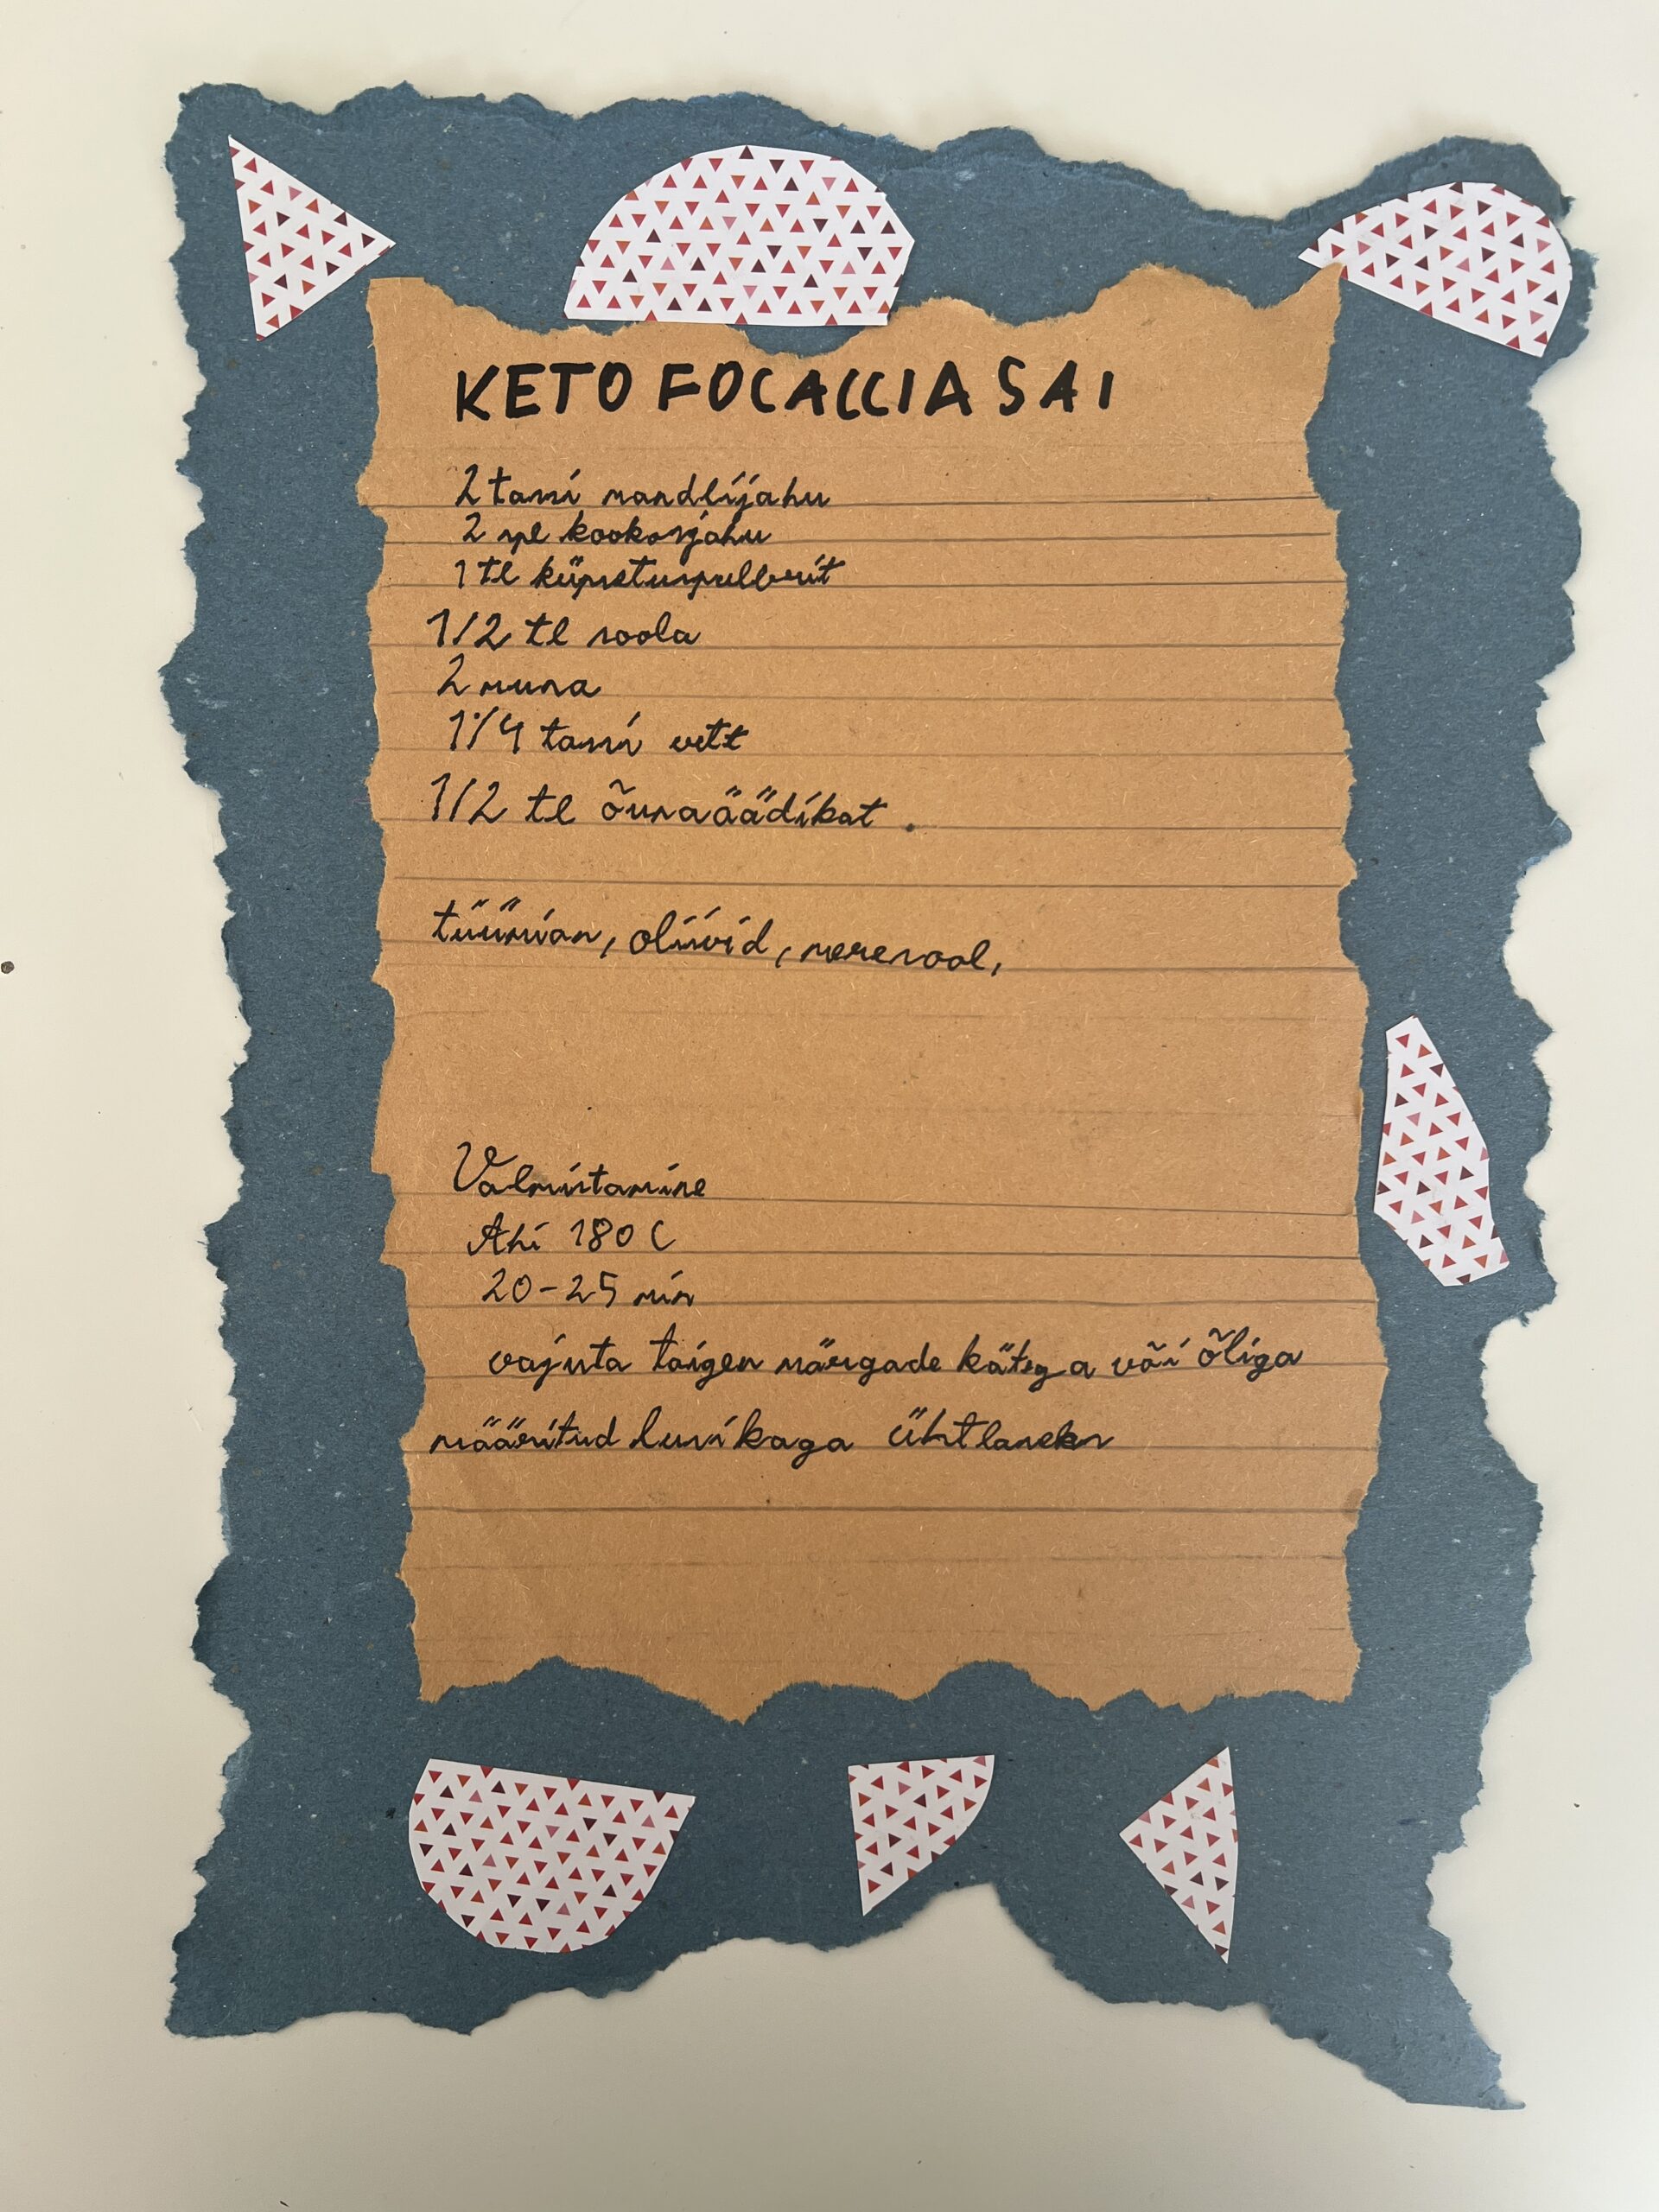 KETO FOCACCIA SAI
2 tassi mandlijahu
2 spl kookosjahu
1 tl küpsetuspulbrit
1/2 tl soola
2 muna
1/4 tassi vett
1/2 tl õunaäädikat.
tüümian, oliivid, meresool,
Valmistamine
Ahi 180 C
20-25 min
vajuta taigen märgade kätega või õliga
määritud lusikaga ühtlaseks